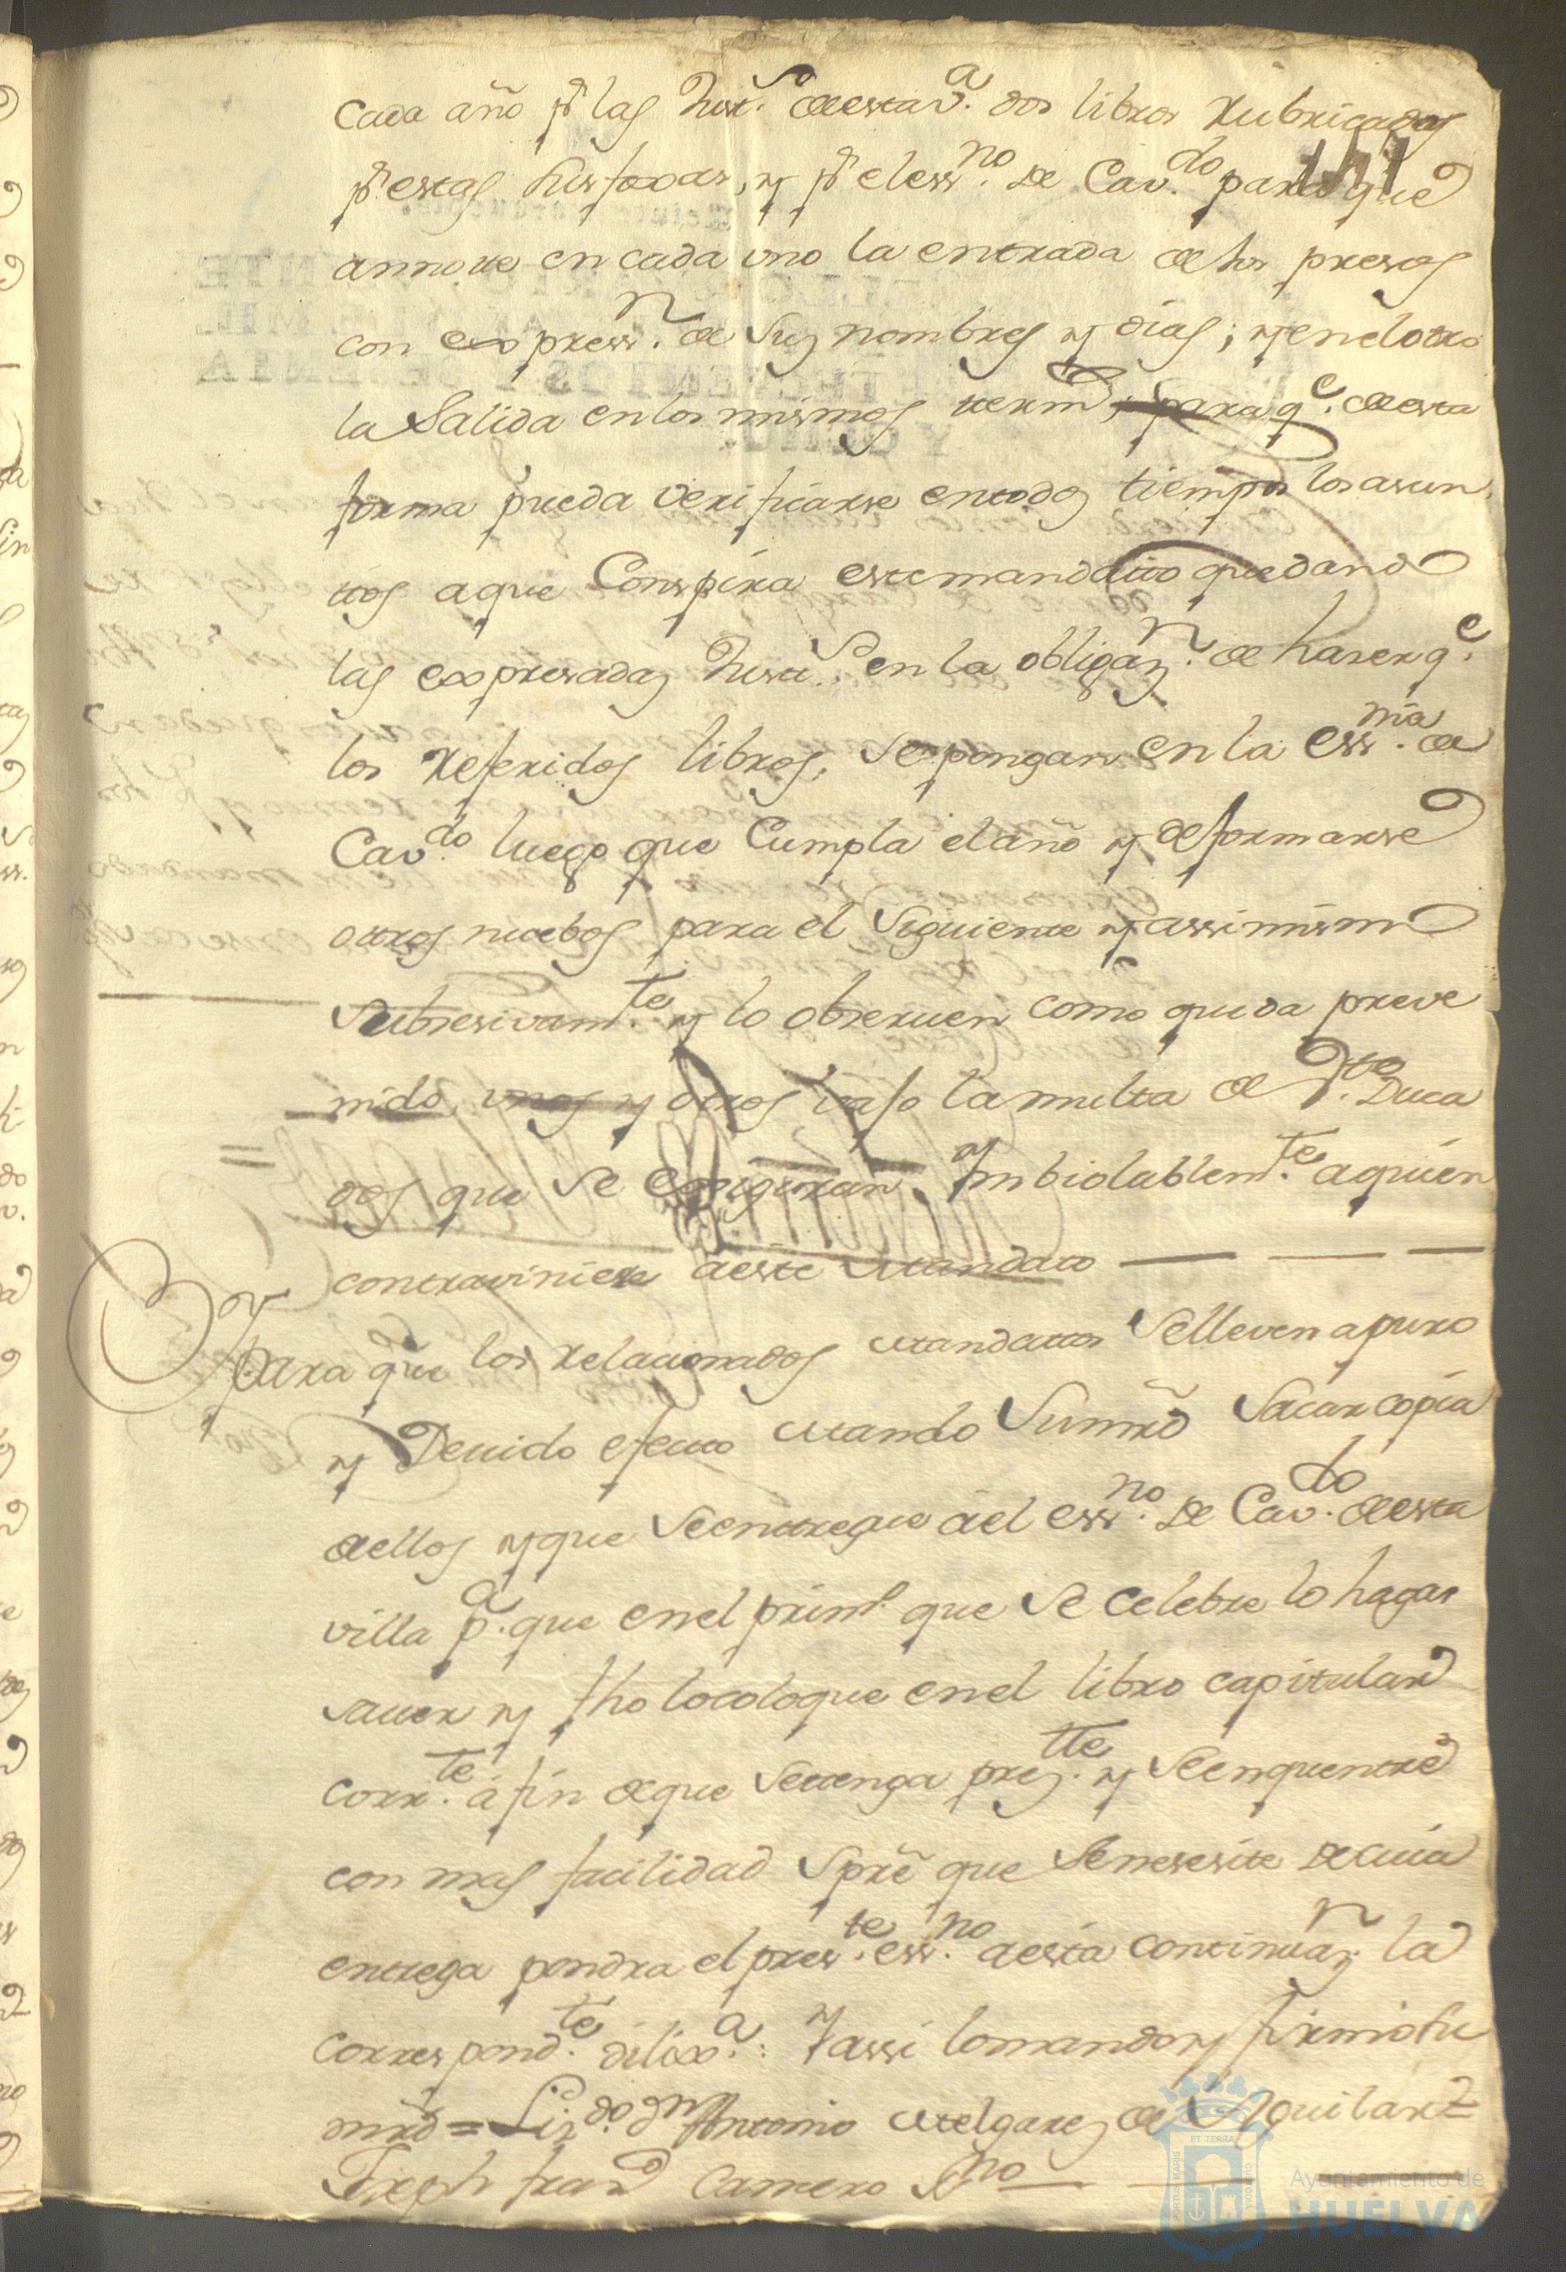 cada año pr las Just.s de esta v.a dos libros rubricados
141
pr estas sus foxas, y pr el ess.no de Cav.do para que
annote en cada uno la entrada de los presos
con express.n de sus nombres y dias; y en el otro
la Salida en los mismos term.s para q.e de esta
forma pueda verificarse en todos tiempos los asun
tos a que Conspira este mandatto quedando
las expresadas Justi.s en la obligaz.n de haser q.e
los referidos libros, se pongan en la ess.nia de
Cav.do luego que Cumpla el año y de formarse
otros nuebos para el siguiente y assi mismo
subsesivam.te y lo observen como queda preve
nido, unos y otros vaxo la multa de d.tos Duca
dos que se exigiran Ymbiolablem.te a quien
contraviniere a este Mandato
Y para que los relacionados Mandattos se lleven a puro
y Devido efecto Mando Su mrd Sacar copia
de ellos y que se entregue a el ess.no de Cav.do de esta
villa p.a que en el prim.o que se celebre lo haga
saver y fho lo coloque en el libro capitular
corr.te a fin de que se tenga prez.tte y se enquentre
con mas facilidad Spre que se nesesite de cuia
entrega pondra el pres.te ess.no a esta continuaz.n la
correspond.te dilix.a: Y assi lo mando y firmo su
mrd = Liz.do dn Antonio Melgarez de Aguilar =
Joseph fran.co Camero Ss.no
Ayuntamiento de
HUELVA